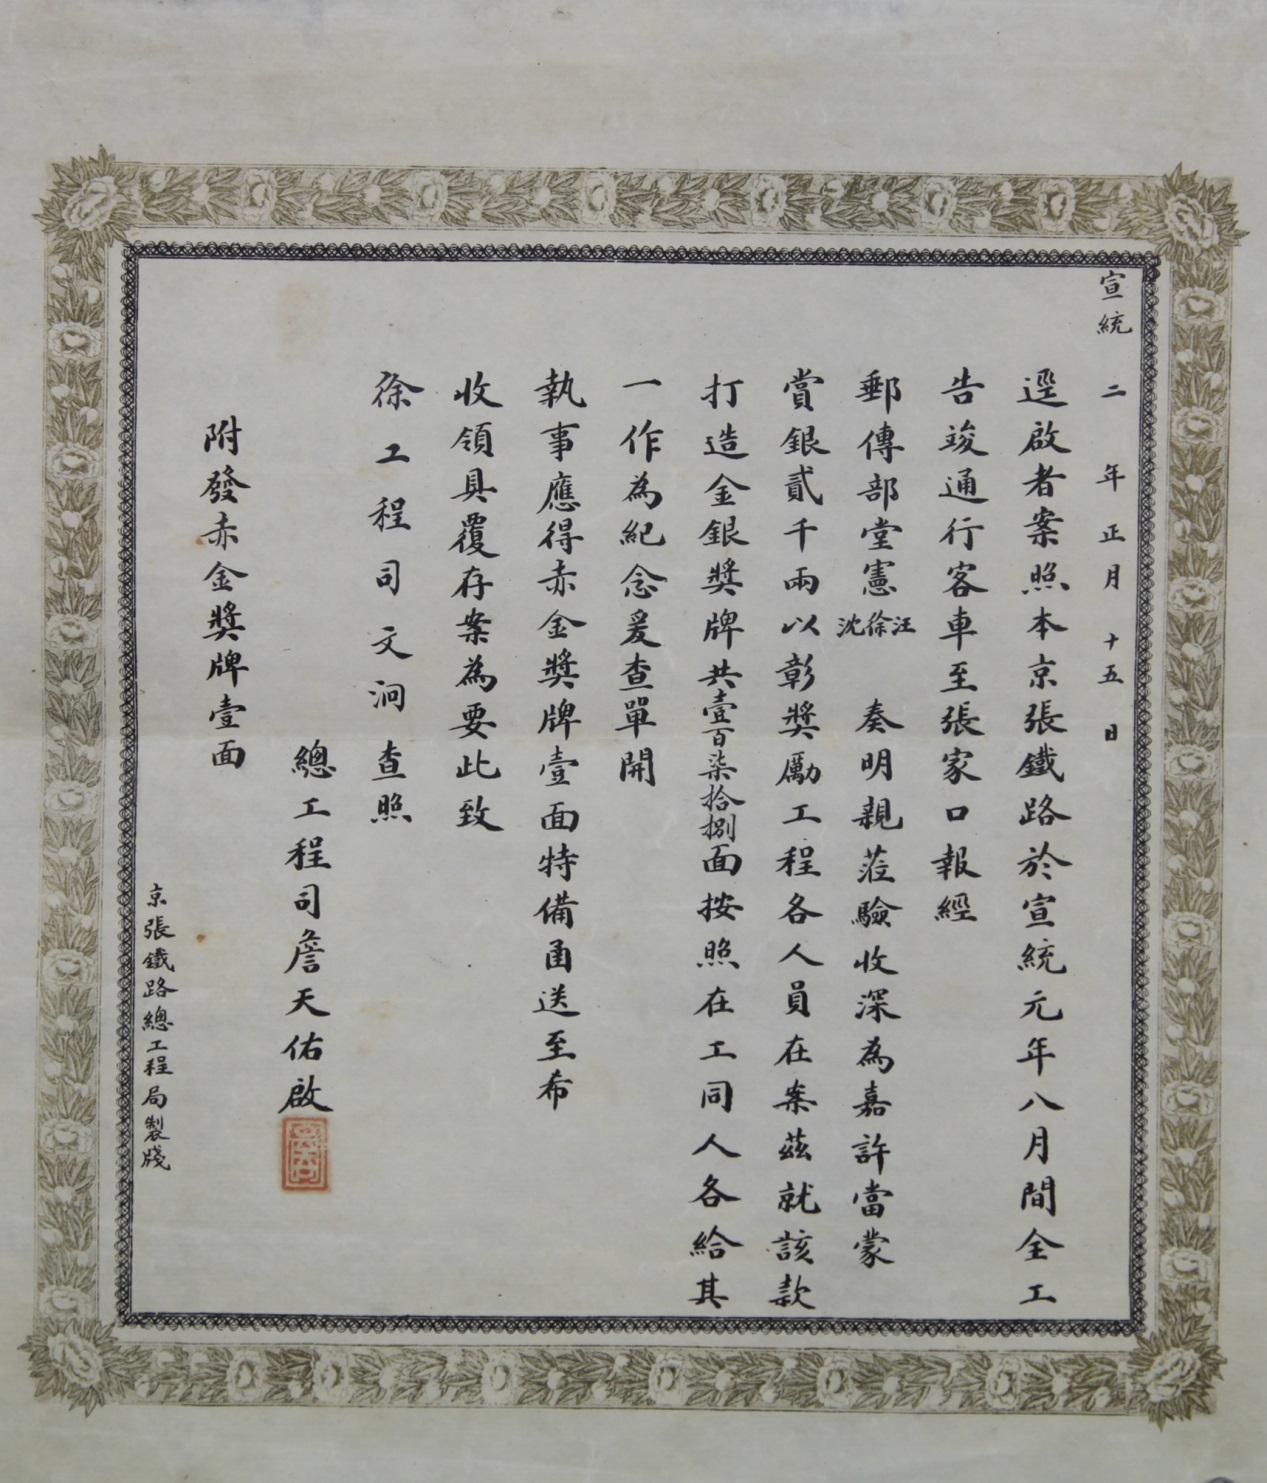 宣統二年正月十五日
逕啟者案照本京張鐵路於宣統元年八月間全工
告竣通行客車至張家口報經
郵傳部堂憲汪徐沈奏明親蒞驗收深為嘉許當蒙
賞銀貳千兩以彰獎勵工程各人員在案茲就該款
打造金銀獎牌共壹百柒拾捌面按照在工同人各給其
一作為紀念爰查單開
執事應得赤金獎牌壹面特備函送至希
收領具覆存案為要此致
徐工程司文泂查照
總工程司詹天佑啟
附發赤金獎牌壹面
京張鐵路總工程局製牋